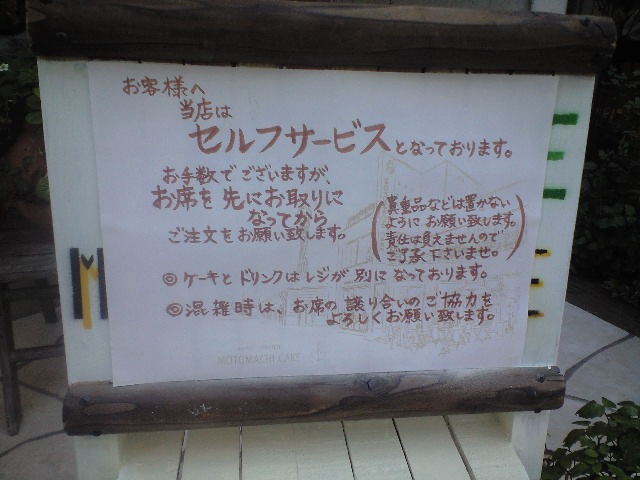 お客様へ
当店は
セルフサービスとなっております。
お手数でございますが、
お席を先にお取りに
なってから
ご注文をお願い致します。
(貴重品などは置かない
ようにお願い致します。
責任は負えませんので
ご了承下さいませ。)
◎ケーキとドリンクはレジが別になっております。
◎混雑時は、お席の譲り合いのご協力を
よろしくお願い致します。
M